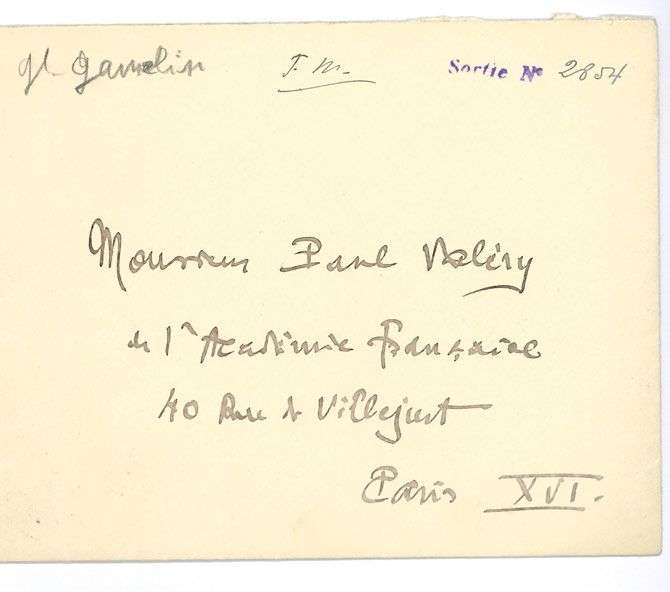 Gl Gamelin T. M. Sortie Nº 2854
Monsieur Paul Valéry
de l'Académie Française
40 Rue de Villejust
Paris XVI.